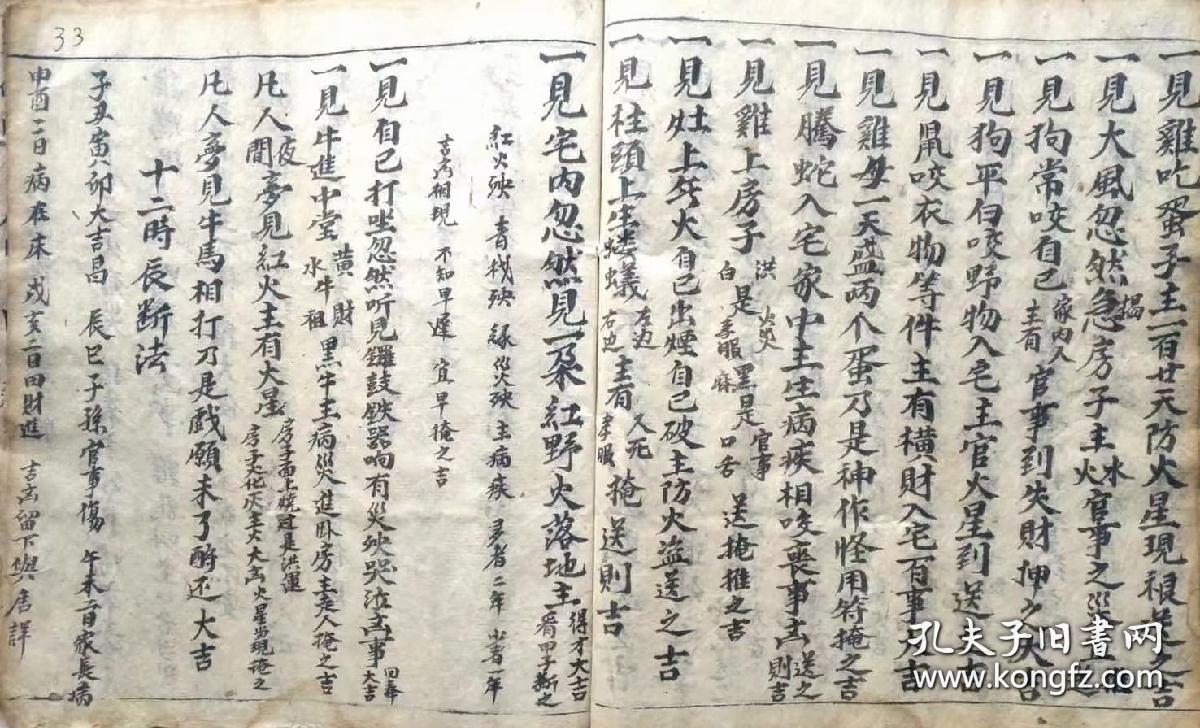 一見雞吃蛋子主一百廿天防火星現禳送之吉
一見大風忽然揭急房子主水火官事之災
一見狗常咬自己家內人主有官事到失財押之大吉
一見狗平白咬野物入宅主官火星到送之吉
一見鼠咬衣物等件主有橫財入宅百事大吉
一見雞母一天盛两个蛋乃是神作怪用符掩之吉
一見騰蛇入宅家中主生病疾相咬喪事凶送之則吉
一見雞上房子洪是火災白是孝服麻黑是官事口舌送掩推之吉
一見灶上生火自己出煙自己破主防火盜送之吉
一見柱頭上生螻蟻左边右边主有人死孝眼掩送則吉
一見宅內忽然見一朵紅野火落地主得才大吉看甲子斷之
紅火殃 青 殃 綠災殃主病疾多者二年少者一年
吉凶相現 不知早遲 宜早掩之吉
一見自己打坐忽然听見鑼鼓鉄器响有災殃哭泣凶事回奉大吉
一見牛進中堂黃財水牛祖黑牛主病災進卧房主走人掩之吉
凡人夜間夢見紅火主有大星房子面上曉過是洪運房子化灰主大凶火星當現掩之
凡人夢見牛馬相打乃是戲願未了酧还大吉
十二時辰斷法
子丑寅卯大吉昌 辰巳子孫官事傷 午未二日家長病
申酉二日病在床 戌亥二日田財進 吉凶留下與君詳
33
孔夫子旧书网
www.kongfz.com